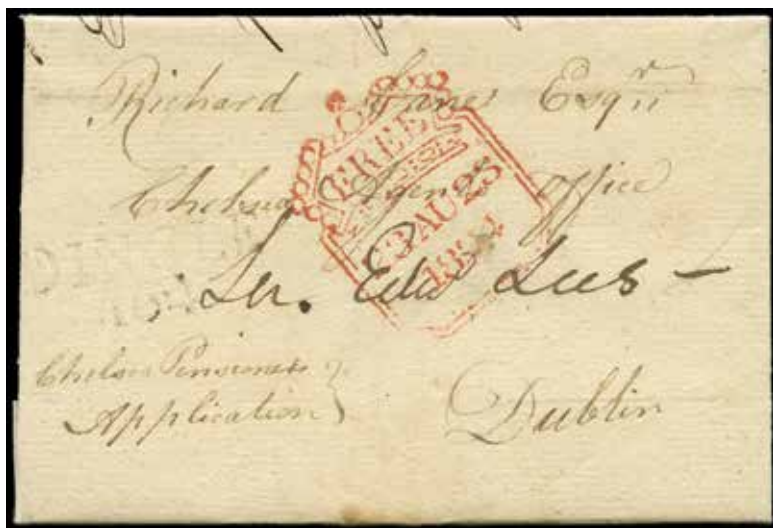 Richard Lane Esqr
Chelsea Agent Office
FREE
AU 25
Sir. Edw Lees
Chelsea Pensioners
Application
Dublin